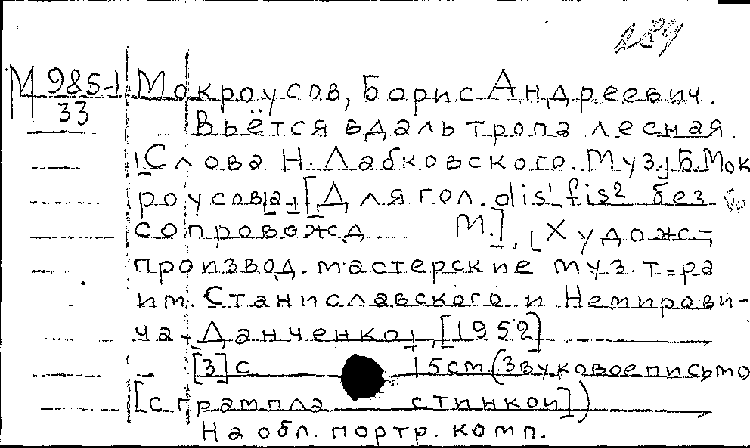 М 985-1
33
Мокроусов, Борис Андреевич.
Вьётся вдаль тропа лесная.
[Слова Н. Лабковского. Муз. Б. Мок
роусова]. [Для гол. dis¹-fis² без
сопровожд М.]. [Художс.-
производ. мастерские муз. т-ра
им. Станиславского и Немирови-
ча-Данченко], [1952]
[3] с 15см (Звуковое письмо
[с грампла стинкой])
На обл. портр. комп.